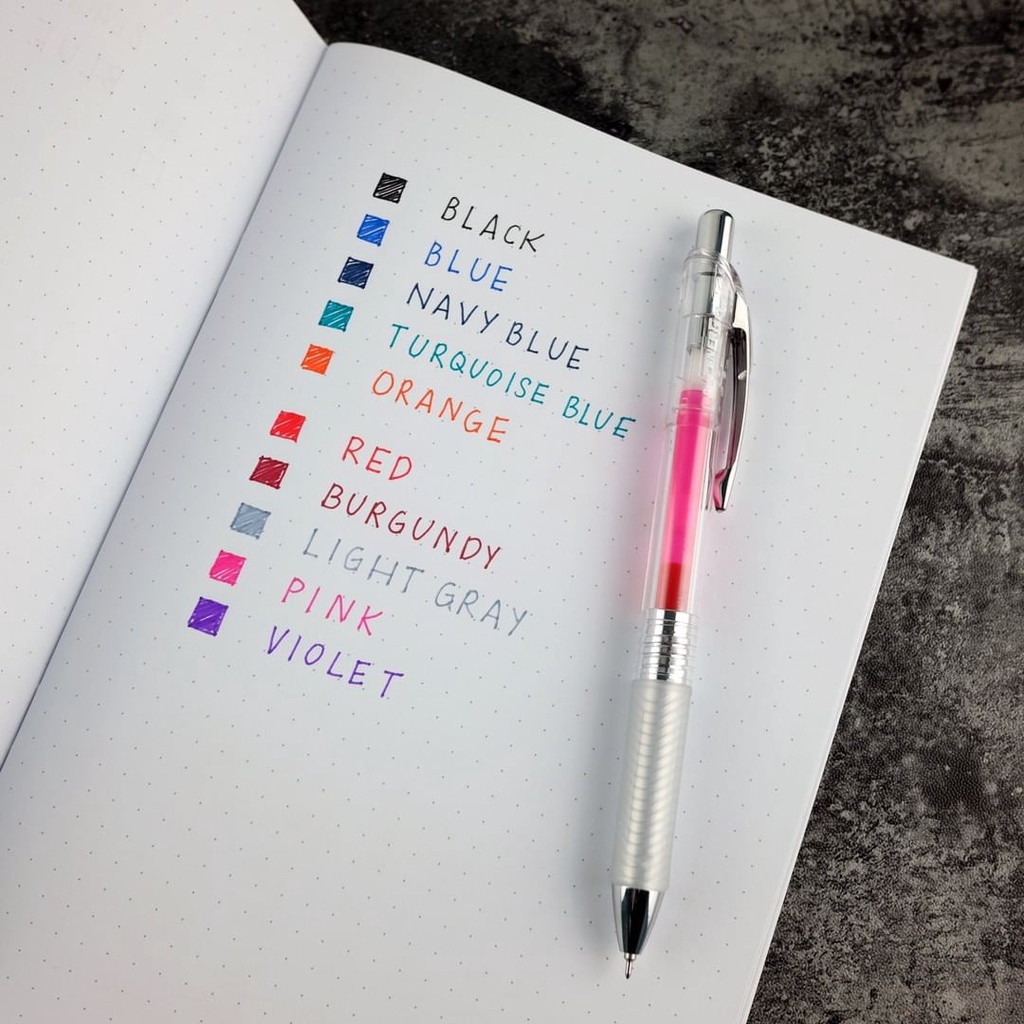 BLACK
BLUE
NAVY BLUE
TURQUOISE BLUE
ORANGE
RED
BURGUNDY
LIGHT GRAY
PINK
VIOLET